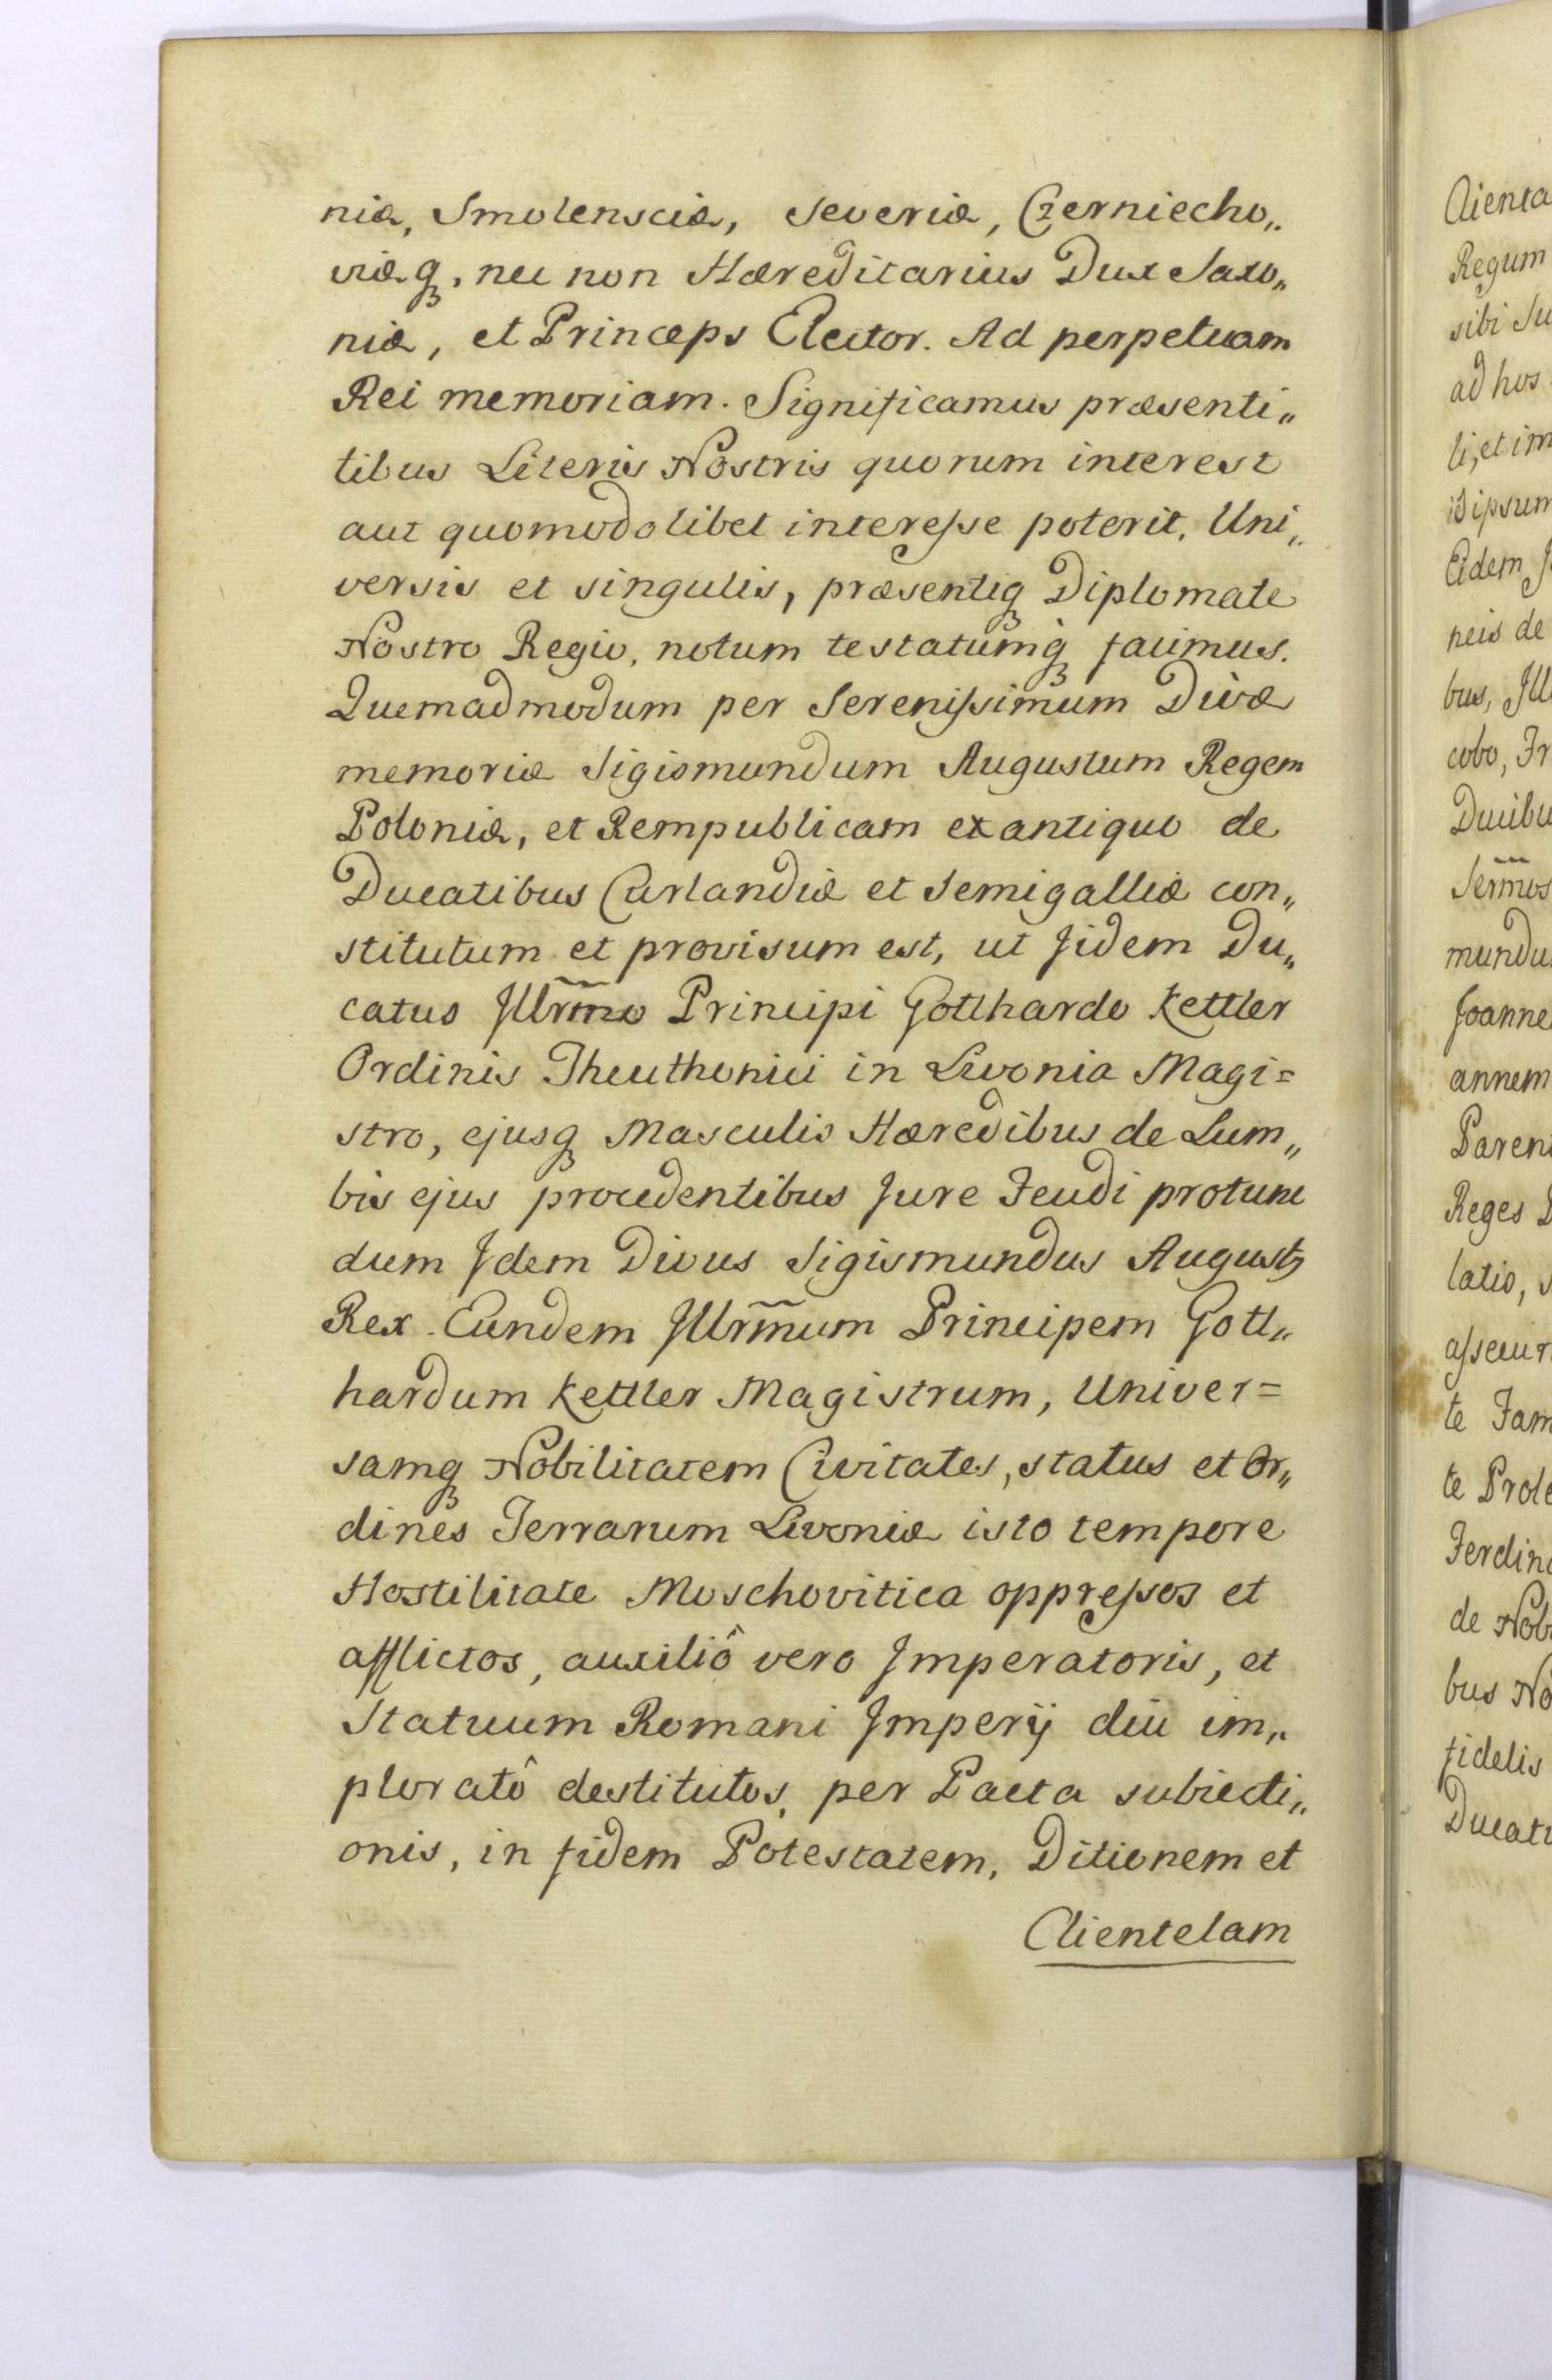 niæ, Smolensciæ, Severiæ, Czerniecho„
viæq, nec non Hæreditarius Dux Saxo„
niæ, et Princeps Elector. Ad perpetuam
Rei memoriam. Significamus præsenti„
tibus Literis Nostris quorum interest
aut quomodolibet interesse poterit, Uni„
versis et singulis, præsentiq Diplomate
Nostro Regio, notum testatumq facimus.
Quemadmodum per Serenissimum Divæ
memoriæ Sigismundum Augustum Regem
Poloniæ, et Rempublicam ex antiquo de
Ducatibus Curlandiæ et Semigalliæ con„
stitutum et provisum est, ut Jidem Du„
catus Jllrm̃o Principi Gotthardo Kettler
Ordinis Theuthonici in Livonia Magi=
stro, ejusq Masculis Hæredibus de Lum„
bis ejus procedentibus Jure Feudi protunc
dum Jdem Divus Sigismundus August9
Rex Eundem Jllrm̃um Principem Gott„
hardum Kettler Magistrum, Univer=
samq Nobilitatem Civitates, status et Or„
dines Terrarum Livoniæ isto tempore
Hostilitate Moschovitica oppressos et
afflictos, auxiliô vero Jmperatoris, et
Statuum Romani Jmperij diu im„
ploratô destitutos, per Pacta subiecti„
onis, in fidem Potestatem, Ditionem et
Clientelam
Clienta
Regum
sibi Su
ad hos
li, et im
id ipsum
Eidem J
neis de
bus, Jll
cobo, Fr
Ducibu
Serm̃os
mundu
Joanne
annem
Paren
Reges
latio, s
assecur
te Fam
te Prole
Ferdin
de Nob
bus No
fidelis
Ducat